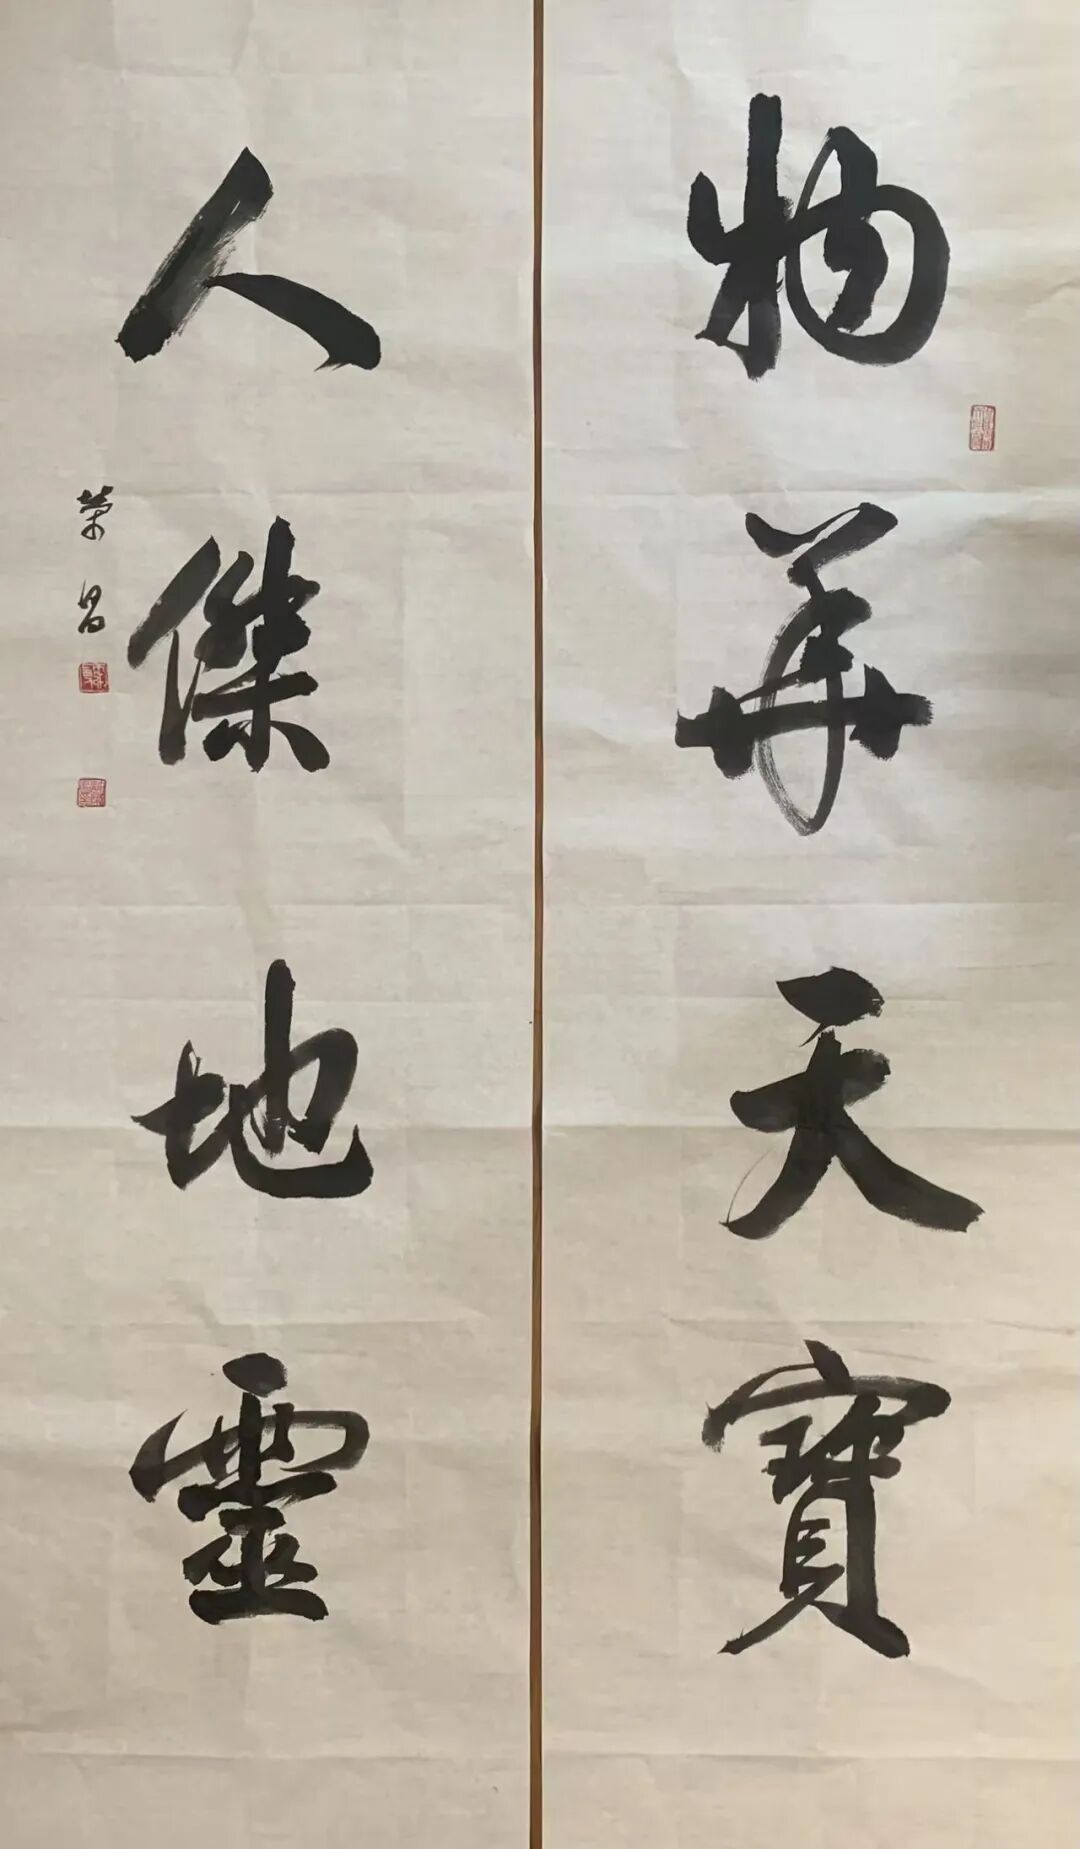 物華天寶
人傑地靈
榮昌